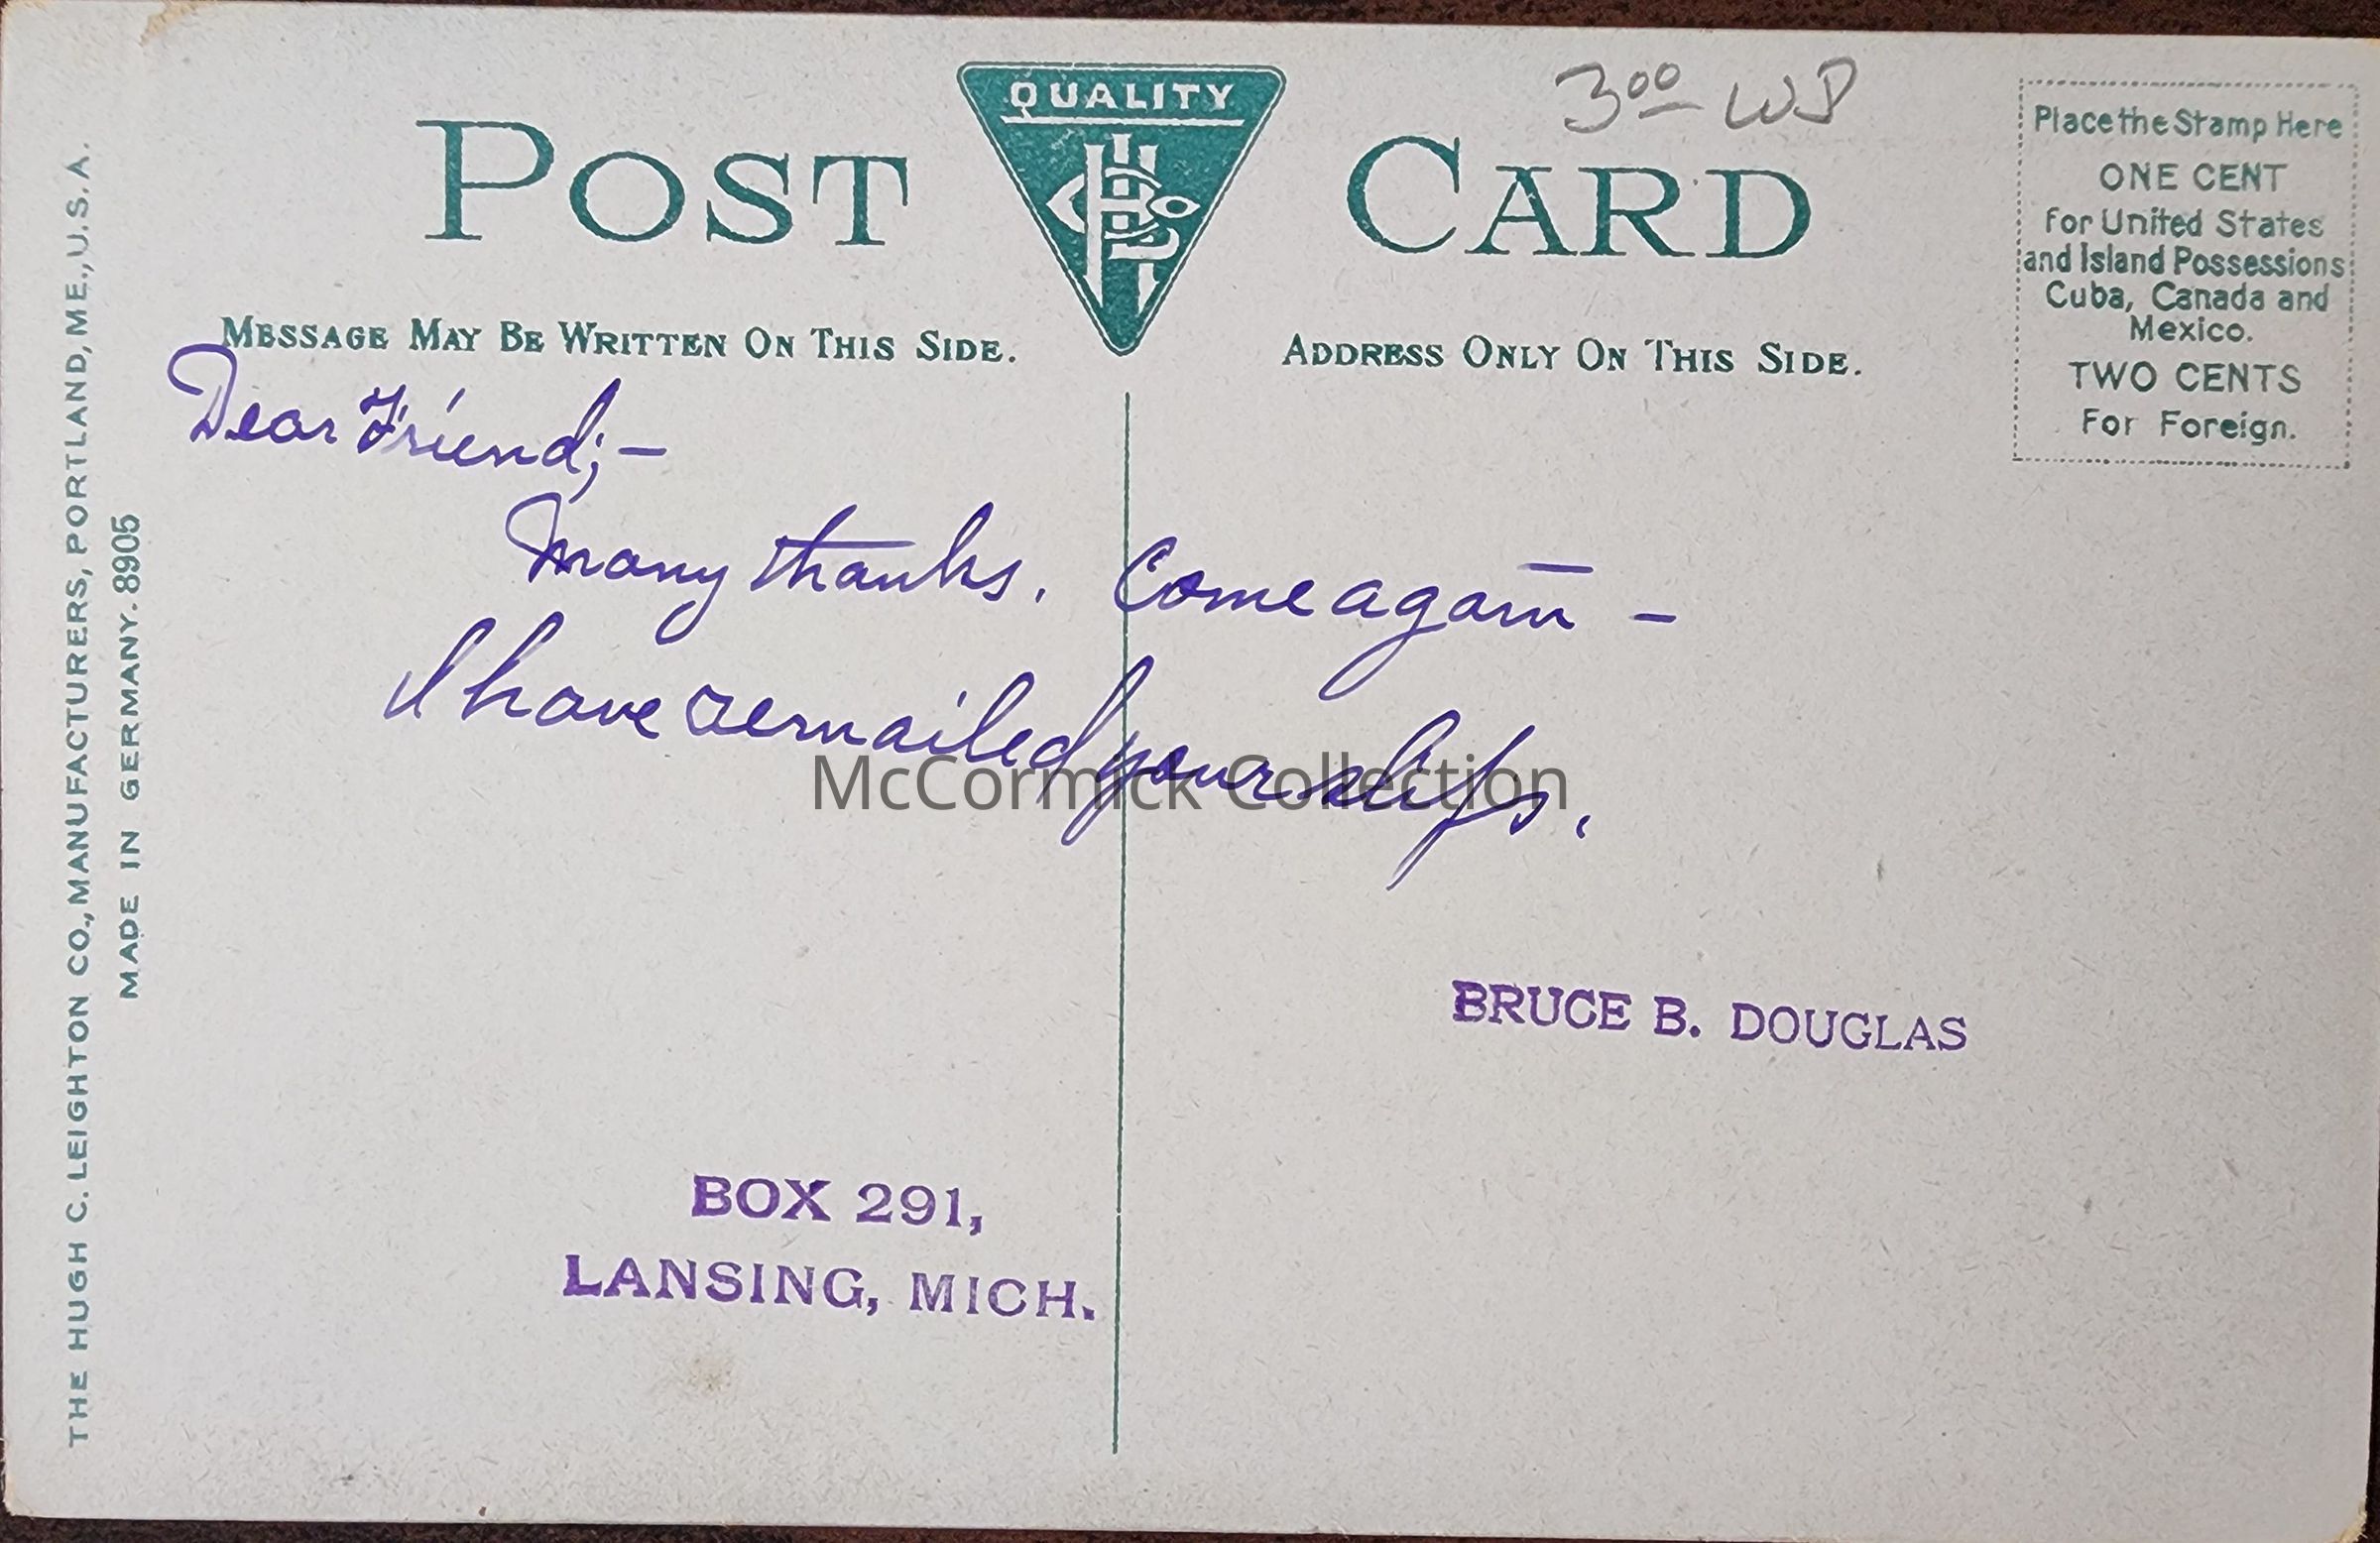 QUALITY
POST CARD
3 00 WD
MESSAGE MAY BE WRITTEN ON THIS SIDE.
ADDRESS ONLY ON THIS SIDE.
Place the Stamp Here
ONE CENT
For United States
and Island Possessions
Cuba, Canada and
Mexico.
TWO CENTS
For Foreign.
Dear Friend;—
Many thanks. Come again —
I have remailed your slips.
McCormick Collection
BRUCE B. DOUGLAS
BOX 291,
LANSING, MICH.
THE HUGH C. LEIGHTON CO., MANUFACTURERS, PORTLAND, ME., U.S.A.
MADE IN GERMANY. 8905